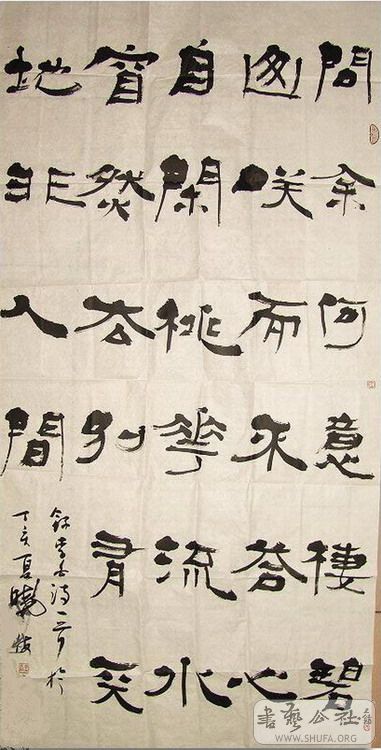 問余何意棲碧
山咲而不答心
自閑桃華流水
窅然去別有天
地非人間
錄李白詩一首於
丁亥夏曉
書藝公社
WWW.SHUFA.ORG